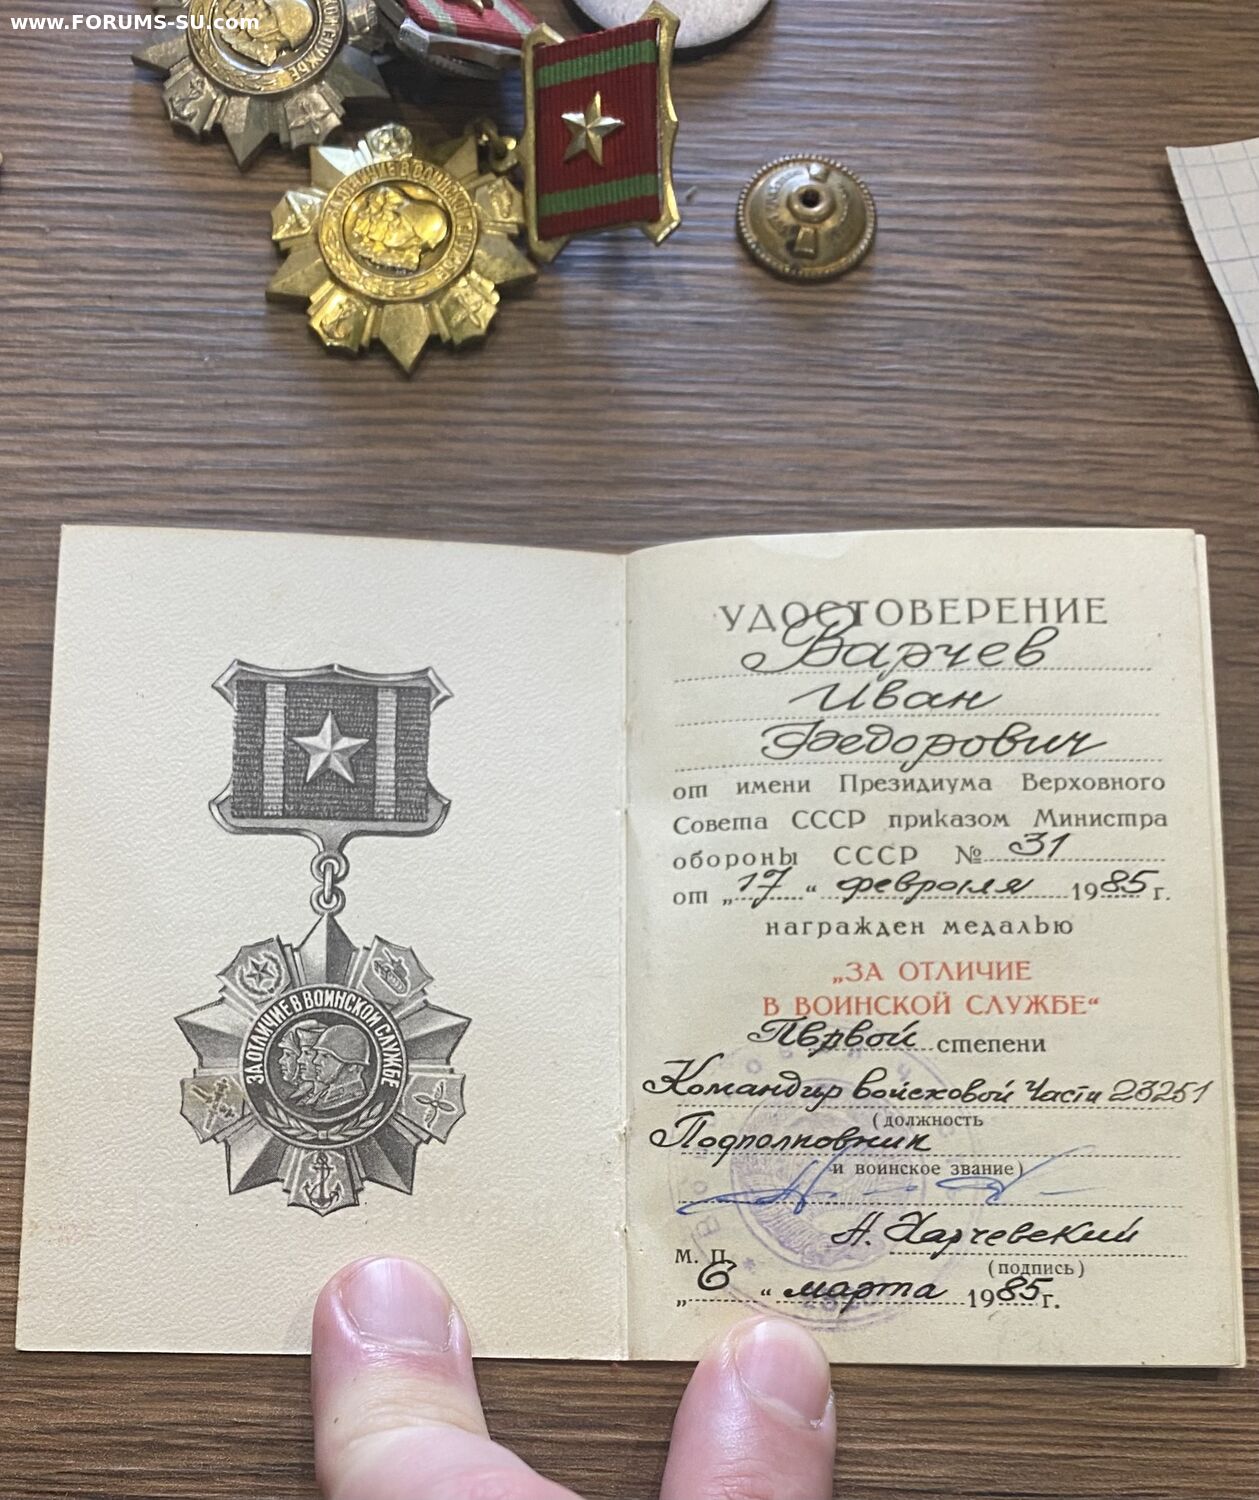 www.FORUMS-SU.com
ЗА ОТЛИЧИЕ В ВОИНСКОЙ СЛУЖБЕ
ЗА ОТЛИЧИЕ В ВОИНСКОЙ СЛУЖБЕ
УДОСТОВЕРЕНИЕ
Варчев
Иван
Федорович
от имени Президиума Верховного
Совета СССР приказом Министра
обороны СССР № 31
от „17“ февраля 1985 г.
награжден медалью
„ЗА ОТЛИЧИЕ
В ВОИНСКОЙ СЛУЖБЕ“
Первой степени
Командир войсковой части 23251
(должность
Подполковник
и воинское звание)
Н. Харчевский
М. П.
(подпись)
„6“ марта 1985 г.